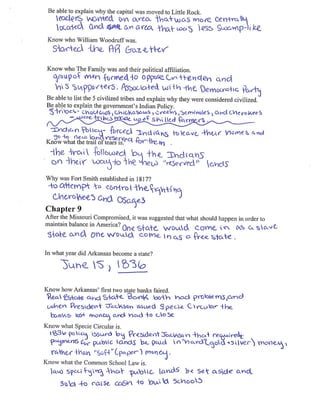 Be able to explain why the capital was moved to Little Rock.
leaders wanted an area that was more centrally
located and an area that was less swamp-like
Know who William Woodruff was.
Started the AR Gazetter
Know who The Family was and their political affiliation.
group of men formed to oppose Crittenden and
his supporters. Associated with the Democratic Party
Be able to list the 5 civilized tribes and explain why they were considered civilized.
Be able to explain the government's Indian Policy.
5 tribes- choctaws, chickasaws, creeks, seminoles, and cherokees
- were tribes made up of skilled farmers
Indian Policy- forced Indians to leave their homes and
go to new land reserved for them.
Know what the trail of tears is.
-the trail followed by the Indians
on their way to the new "reserved" lands
Why was Fort Smith established in 1817?
-to attempt to control the fighting
Cherokees and Osages
Chapter 9
After the Missouri Compromised, it was suggested that what should happen in order to
maintain balance in America? One state would come in as a slave
state and one would come in as a free state.
In what year did Arkansas become a state?
June 15, 1836
Know how Arkansas' first two state banks faired.
Real Estate and State Bank both had problems, and
when President Jackson issued Specie Circular the
banks lost money and had to close
Know what Specie Circular is.
1836 policy issued by President Jackson that required
payments for public lands be paid in "hard" (gold + silver) money,
rather than "soft" (paper) money.
Know what the Common School Law is.
law specifying that public lands be set aside and
sold to raise cash to build schools